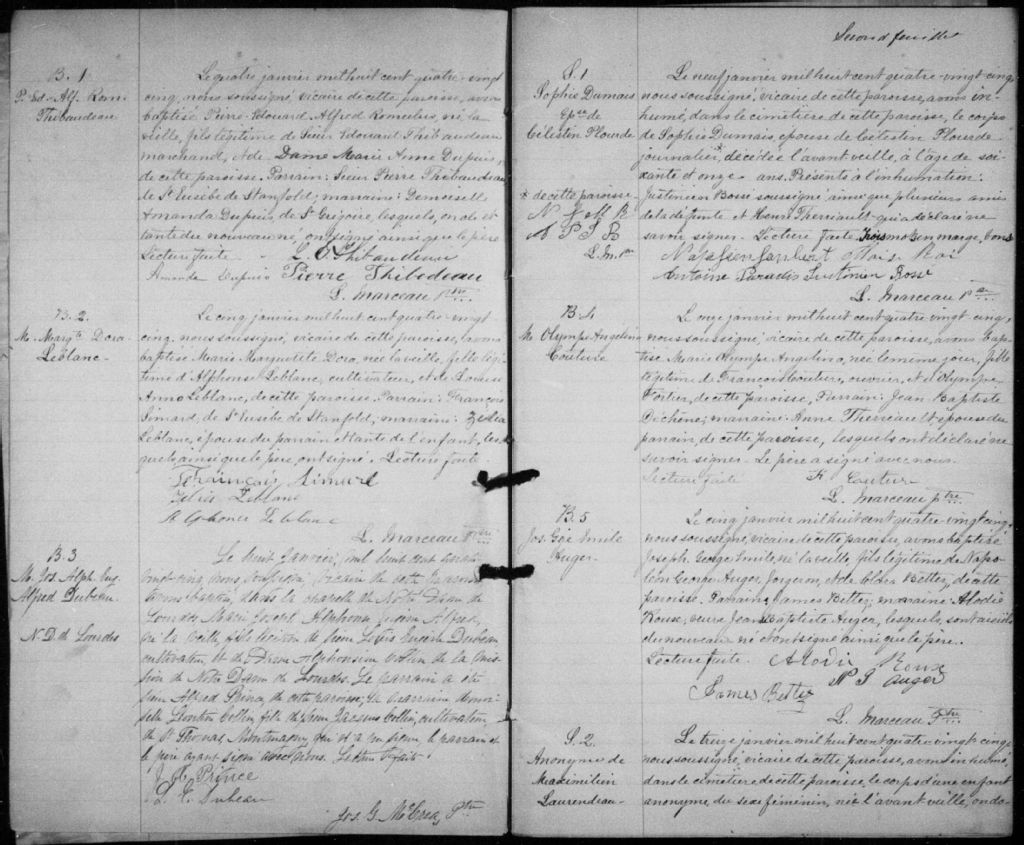 B. 1
P. Ed-Alf. Rom.
Thibaudeau
Le quatre janvier mil huit cent quatre-vingt
cinq, nous soussigné, vicaire de cette paroisse, avons
baptisé Pierre-Edouard Alfred Romulus, né la
veille, fils légitime de Sieur Edouard Thibaudeau
marchand, et de Dame Marie Anne Dupuis,
de cette paroisse. Parrain: Sieur Pierre Thibaudeau
de St Eusèbe de Stanfold; marraine: Demoiselle
Amanda Dupuis, de St Grégoire, lesquels, oncle et
tante du nouveau né, ont signé ainsi que le père
Lecture faite. L. O. Thibaudeau
Amanda Dupuis Pierre Thibodeau
L. Marceau Ptre
B. 2
M. Margte Dora
Leblanc
Le cinq janvier mil huit cent quatre-vingt
cinq, nous soussigné, vicaire de cette paroisse, avons
baptisé Marie Marguerite Dora, née la veille, fille légi-
time d'Alphonse Leblanc, cultivateur, et de Louise
Anna Leblanc, de cette paroisse. Parrain: François
Simard, de St Eusèbe de Stanfold, marraine: Zélia
Leblanc, épouse du parrain et tante de l'enfant, les-
quels ainsi que le père, ont signé. Lecture faite.
François Simard
Zelia Leblanc
Alphonse Leblanc
L. Marceau Ptre
B. 3
M. Jos. Alph. Eug.
Alfred Dubeau
N. D. d Lourdes
Le huit Janvier, mil huit cent quatre
vingt-cinq, nous soussigné, vicaire de cette paroisse
avons baptisé, dans la chapelle de Notre Dame de
Lourdes Marie Joseph Alphonse Eugène Alfred,
né la veille, fils légitime de Sieur Louis Eugène Dubeau
cultivateur, et de Dame Alphonsine Collin de la mis-
sion de Notre Dame de Lourdes. Le parrain a été
Sieur Alfred Prince de cette paroisse; la marraine demoi-
selle Collin, fille de Sieur Jacques Collin, cultivateur,
de St Thomas, Montmagny, qui n'a pu signer le parrain et
le père ayant signé avec nous. Lecture faite.
Prince
L. E. Dubeau
Jos. G. McCrea, Ptre
Second feuillet
S. 1
Sophie Dumais
Epse de
Célestin Plourde
* de cette paroisse
N J M R
A P J B
L. M. ptre
Le neuf janvier mil huit cent quatre-vingt cinq,
nous soussigné, vicaire de cette paroisse, avons in-
humé, dans le cimetière de cette paroisse, le corps
de Sophie Dumais, épouse de Célestin Plourde
journalier*, décédée l'avant veille, à l'âge de soi-
xante et onze ans. Présents à l'inhumation:
Justinien Bossé soussigné ainsi que plusieurs amis
de la défunte et Henri Therriault qui a déclaré ne
savoir signer. Lecture faite. Trois mots en marge, bons
Moïse Roi
Antoine Paradis Justinien Bossé
L. Marceau Ptre
B. 4
M. Olympe Angelina
Couture
Le onze janvier mil huit cent quatre vingt cinq,
nous soussigné, vicaire de cette paroisse, avons bap-
tisé Marie Olympe Angelina, née le même jour, fille
légitime de François Couture, ouvrier, et d'Olympe
Fortier, de cette paroisse, Parrain: Jean Baptiste
Dechêne; marraine: Anne Therreault, épouse du
parrain, de cette paroisse, lesquels ont déclaré ne
savoir signer. Le père a signé avec nous.
Lecture faite F. Couture
L. Marceau ptre
B. 5
Jos. Gge Emile
Auger
Le cinq janvier mil huit cent quatre vingt cinq,
nous soussigné, vicaire de cette paroisse, avons baptisé
Joseph George Emile, né la veille, fils légitime de Napo-
léon George Auger, forgeron, et de Elda Bettez, de cette
paroisse. Parrain, James Bettez, marraine Alodie
Roux, veuve Jean Baptiste Auger, lesquels, sont aïeuls
du nouveau né et ont signé ainsi que le père.
Lecture faite. Alodie Roux
N G Auger
James Bettez
L. Marceau Ptre
S. 2.
Anonyme de
Maximilien
Laurendeau
Le treize janvier mil huit cent quatre-vingt cinq
nous soussigné, vicaire de cette paroisse, avons inhumé,
dans le cimetière de cette paroisse, le corps d'une enfant
anonyme, du sexe féminin, née l'avant veille, ondo-